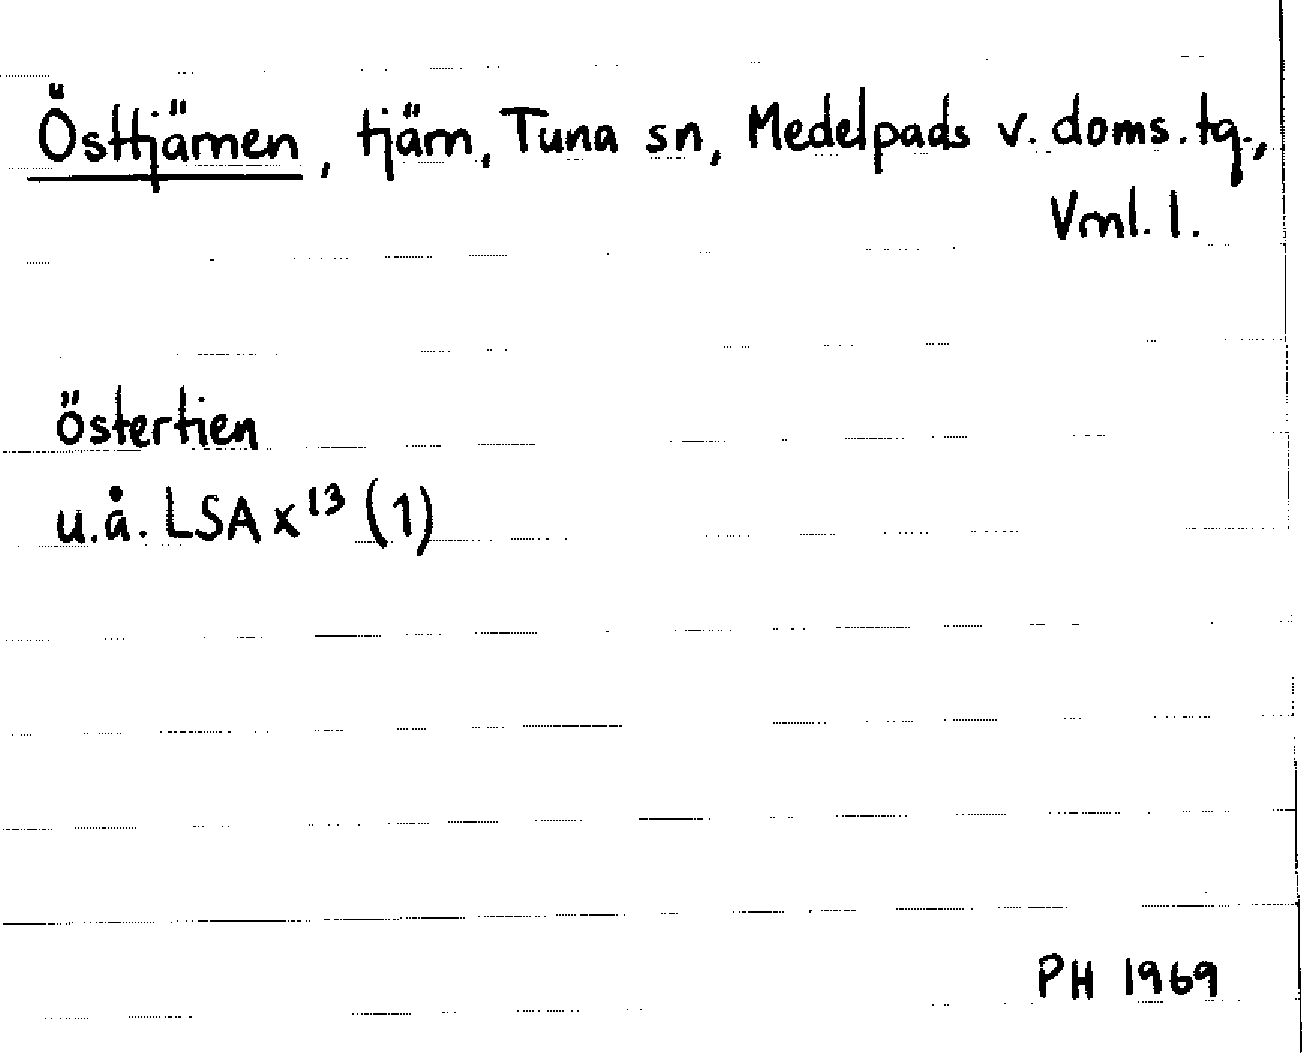 Östtjärnen, tjärn, Tuna sn, Medelpads v. doms. tg.,
Vml. l.
östertien
u.å. LSA x¹³ (1)
PH 1969